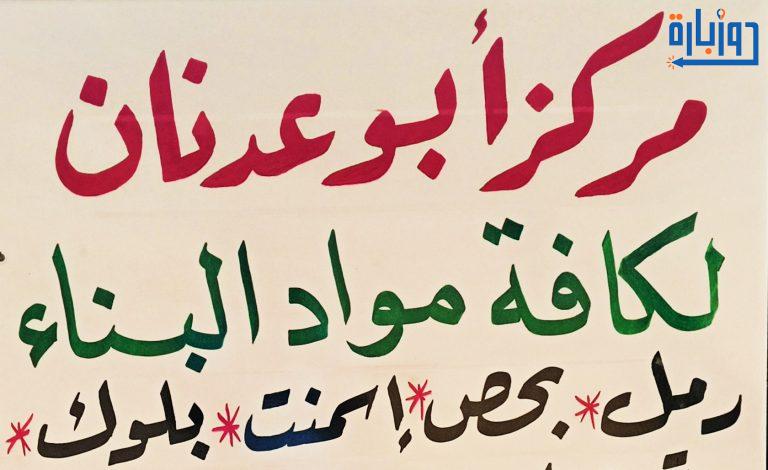 دوزبارة
مركز أبو عدنان
لكافة مواد البناء
رمل * بحص * إسمنت * بلوك *